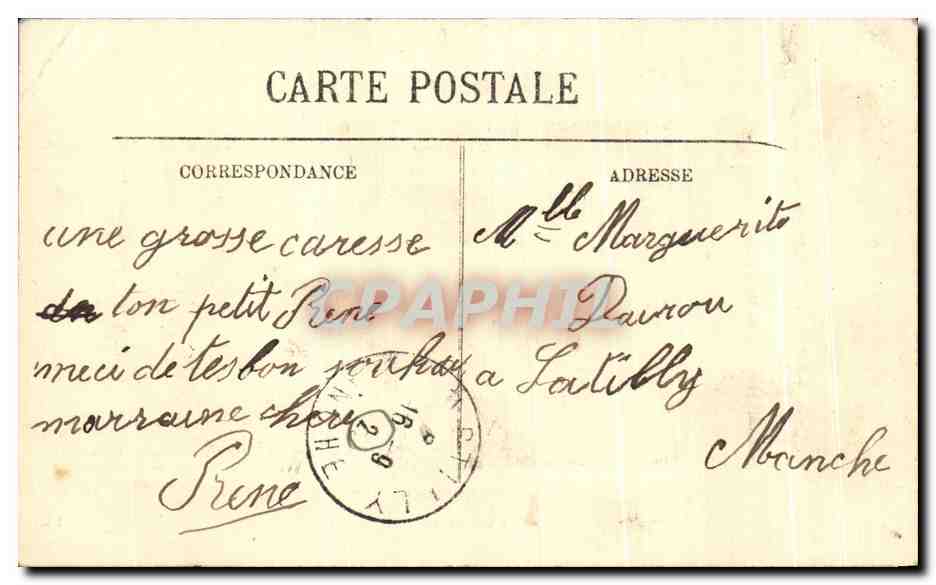 CARTE POSTALE
CORRESPONDANCE
ADRESSE
une grosse caresse
de ton petit Rene
meci de tes bon souhai
marraine chere
Rene
Mlle Marguerite
a Latilly
Manche
CPAPHIL
16 - 9
2
TILLY